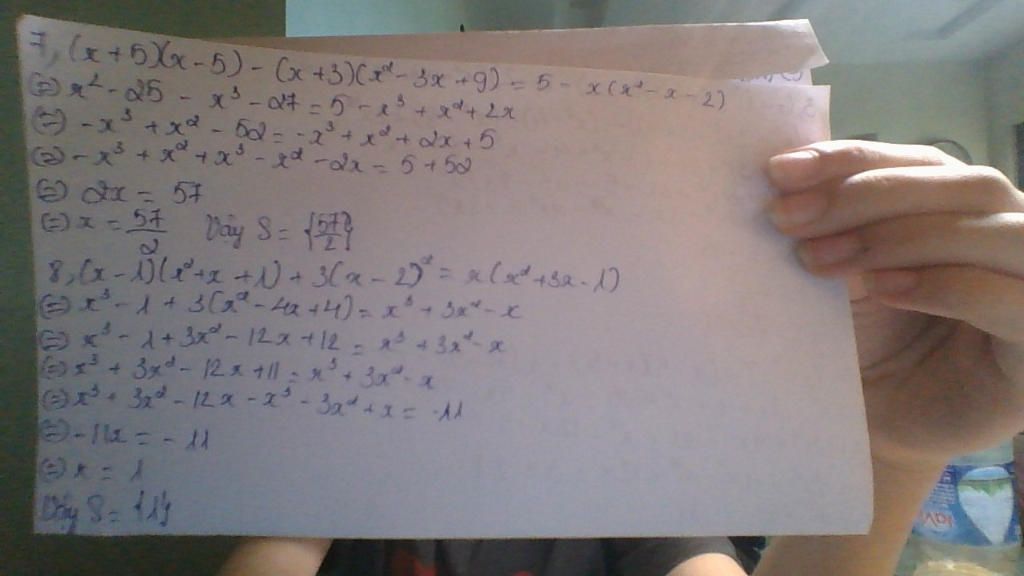 7, (x+5)(x-5) - (x+3)(x² - 3x + 9) = 5 - x(x² - x - 2)
⇔ x² - 25 - x³ - 27 = 5 - x³ + x² + 2x
⇔ -x³ + x² - 52 = -x³ + x² + 2x + 5
⇔ -x³ + x² + x³ - x² - 2x = 5 + 52
⇔ 2x = 57
⇔ x = 57/2 Vậy S = {57/2}
8, (x-1)(x² + x + 1) + 3(x-2)² = x(x² + 3x - 1)
⇔ x³ - 1 + 3(x² - 4x + 4) = x³ + 3x² - x
⇔ x³ - 1 + 3x² - 12x + 12 = x³ + 3x² - x
⇔ x³ + 3x² - 12x + 11 = x³ + 3x² - x
⇔ x³ + 3x² - 12x - x³ - 3x² + x = -11
⇔ -11x = -11
⇔ x = 1
Vậy S = {1}